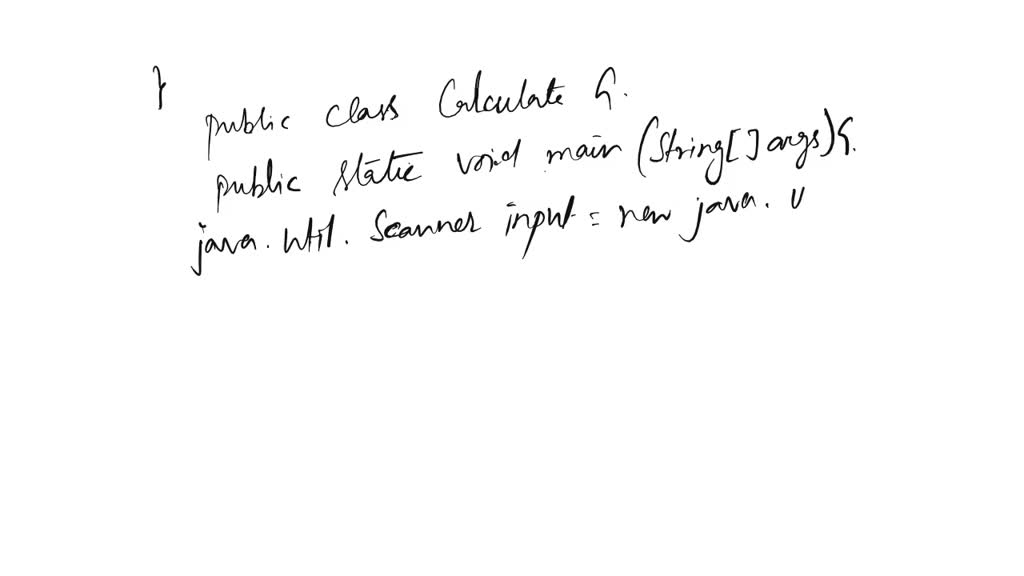 }
public class Calculate {.
public static void main (String[] args) {.
java.util. Scanner input = new java. u